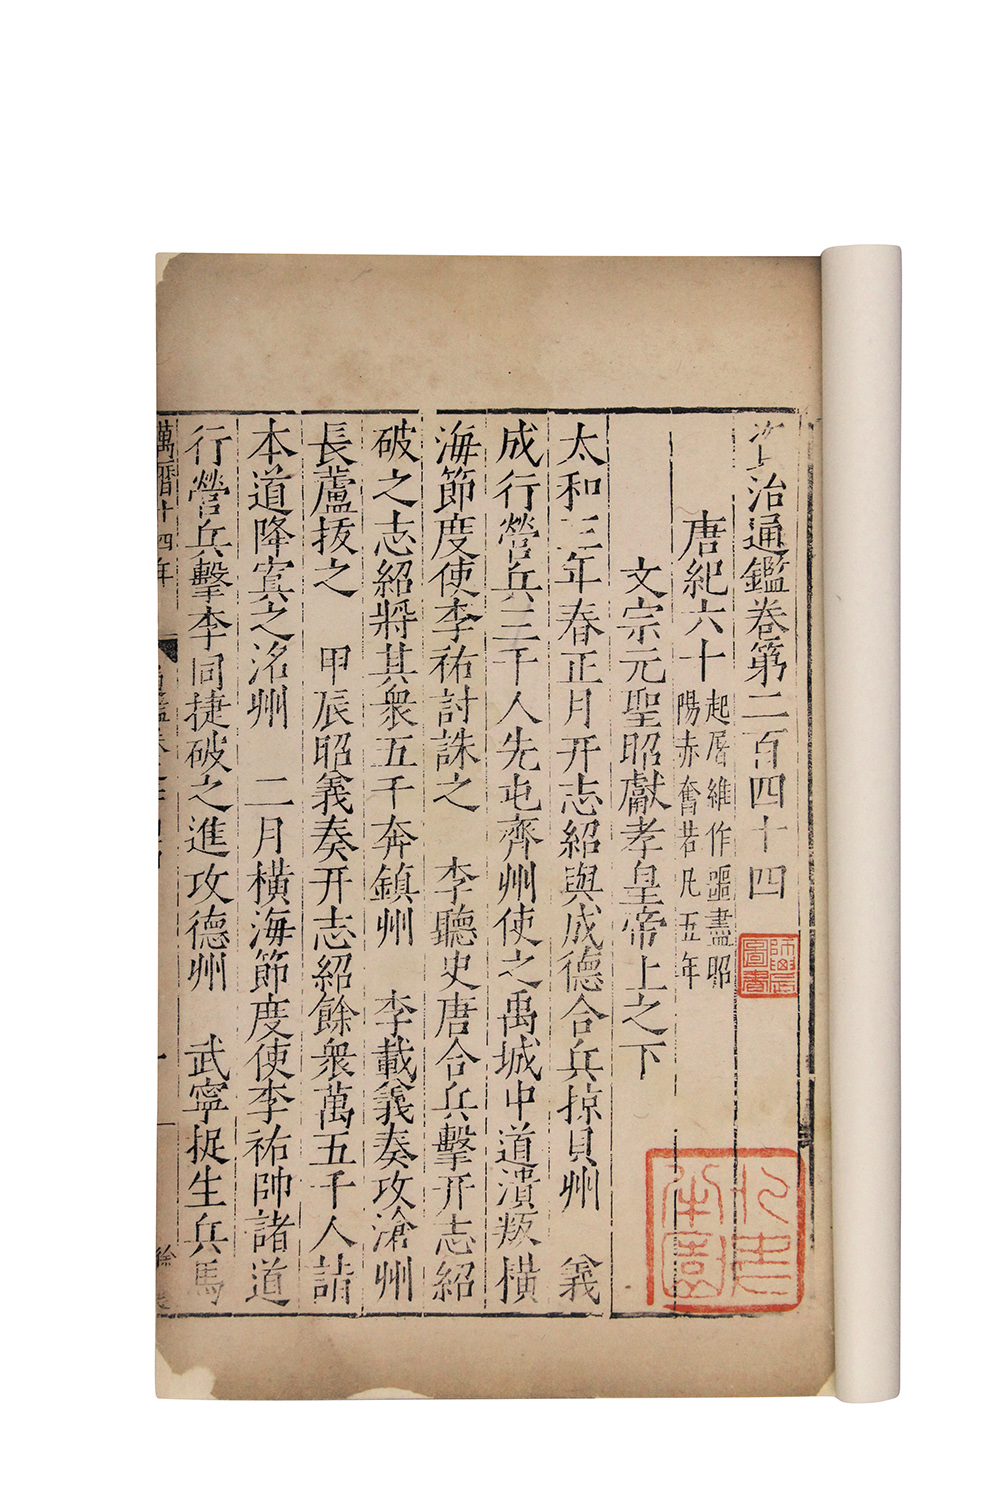 資治通鑑卷第二百四十四
唐紀六十 起屠維作噩盡昭
陽赤奮若凡五年
文宗元聖昭獻孝皇帝上之下
太和三年春正月亓志紹與成德合兵掠貝州 義
成行營兵三千人先屯齊州使之禹城中道潰叛橫
海節度使李祐討誅之 李聽史唐合兵擊亓志紹
破之志紹將其衆五千奔鎮州 李載義奏攻滄州
長蘆拔之 甲辰昭義奏亓志紹餘衆萬五千人請
本道降寘之洺州 二月橫海節度使李祐帥諸道
行營兵擊李同捷破之進攻德州 武寧捉生兵馬
萬曆十四年